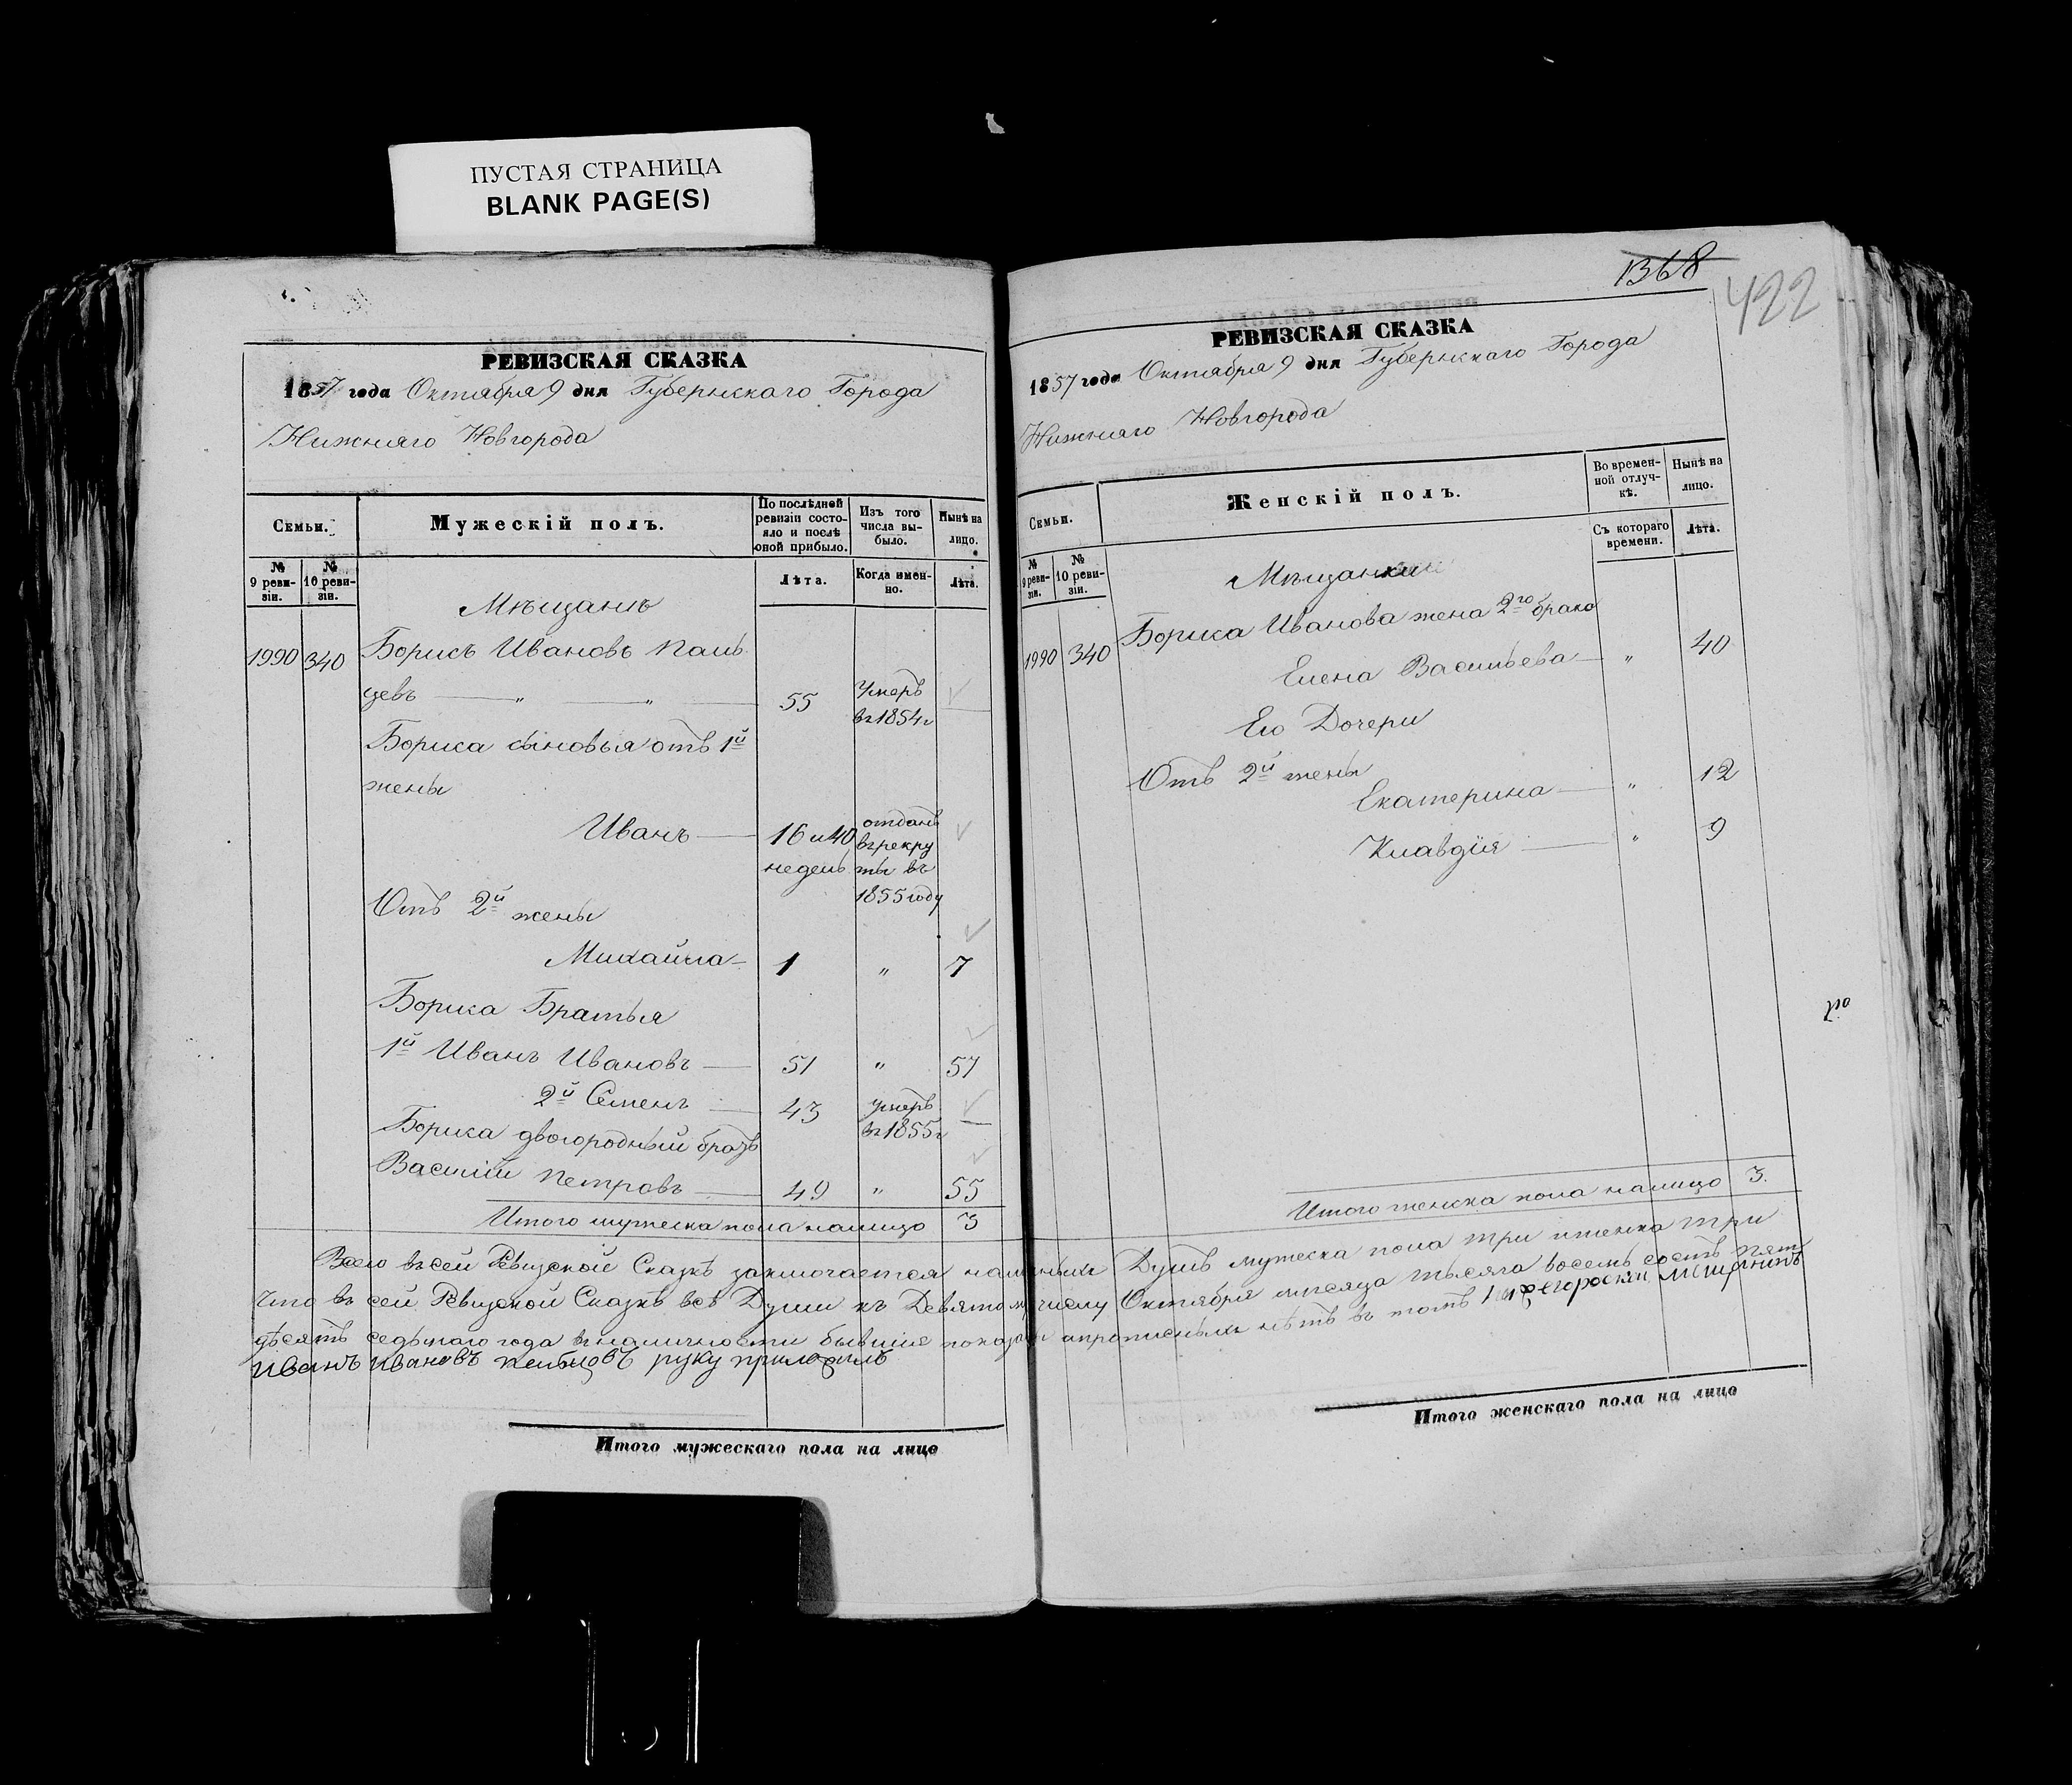 ПУСТАЯ СТРАНИЦА
BLANK PAGE(S)
РЕВИЗСКАЯ СКАЗКА
1857 года Октября 9 дня Губернскаго Города
Нижняго Новгорода
Семьи.
Мужескій полъ.
По послѣдней ревизіи состояло и послѣ оной прибыло.
Изъ того числа выбыло.
Нынѣ на лицо.
№ 9 ревизіи.
№ 10 ревизіи.
Лѣта.
Когда именно.
Лѣта.
Мѣщанъ
1990 340 Борисъ Ивановъ
цевъ — " — " — 55 Умеръ
въ 1854 г
Бориса сыновья отъ 1й
жены
Иванъ — 16 и 40 отданъ
въ рекру
недель ты въ
1855 году
Отъ 2й жены
Михайла — 1 " 7
Бориса Братья
1й Иванъ Ивановъ — 51 " 57
2й Семенъ — 43 умеръ —
въ 1855 г
Бориса двоюродный братъ
Василій Петровъ — 49 " 55
Итого мужеска пола налицо 3
1368
422
РЕВИЗСКАЯ СКАЗКА
1857 года Октября 9 дня Губернскаго Города
Нижняго Новгорода
Семьи.
Женскій полъ.
Во временной отлучкѣ.
Нынѣ на лицо.
№ 9 ревизіи.
№ 10 ревизіи.
Съ котораго времени.
Лѣта.
Мѣщанки
1990 340 Бориса Иванова жена 2го брака
Елена Васильева — " 40
Его Дочери
Отъ 2й жены
Екатерина — " 12
Клавдія — " 9
Итого женска пола налицо 3.
Всего въ сей Ревизской Сказкѣ заключается наличныхъ Душъ мужеска пола три женска три
Что въ сей Ревизской Сказкѣ всѣ Души къ Девятому числу Октября мѣсяца тысяча восемь сотъ пять
десятъ седьмаго года въ наличности бывшие показаны и прописныхъ нѣтъ въ томъ мещанинъ
Иванъ Ивановъ руку приложилъ
Итого мужескаго пола на лице
Итого женскаго пола на лице